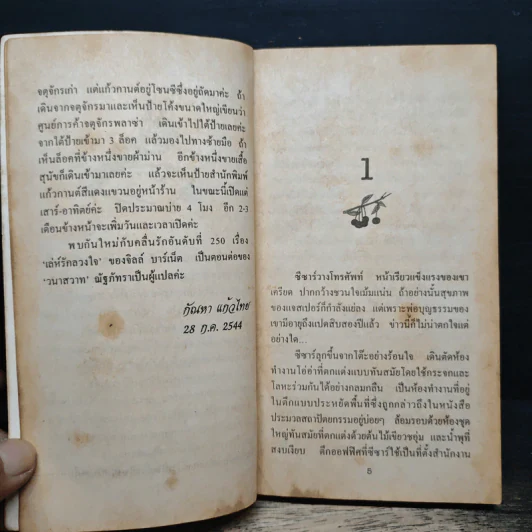 จตุจักรเก่า แต่แก้วกานต์อยู่โซนซีซึ่งอยู่ถัดมาค่ะ ถ้า
เดินจากจตุจักรมาและเห็นป้ายโค้งขนาดใหญ่เขียนว่า
ศูนย์การค้าจตุจักรพลาซ่า เดินเข้าไปใต้ป้ายเลยค่ะ
จากใต้ป้ายเข้ามา 3 ล็อค แล้วมองไปทางซ้ายมือ ถ้า
เห็นล็อคที่ข้างหนึ่งขายผ้าม่าน อีกข้างหนึ่งขายเสื้อ
สุนัขก็เดินเข้ามาเลยค่ะ แล้วจะเห็นป้ายสำนักพิมพ์
แก้วกานต์สีแดงแขวนอยู่หน้าร้าน ในขณะนี้เปิดแค่
เสาร์-อาทิตย์ค่ะ ปิดประมาณบ่าย 4 โมง อีก 2-3
เดือนข้างหน้าจะเพิ่มวันและเวลาเปิดค่ะ
พบกันใหม่กับคลื่นรักอันดับที่ 250 เรื่อง
'เล่ห์รักลวงใจ' ของจิลล์ บาร์เน็ต เป็นตอนต่อของ
'วนาสวาท' ณัฐภัทราเป็นผู้แปลค่ะ
กัณหา แก้วไทย
28 ก.ค. 2544
1
ซีซาร์วางโทรศัพท์ หน้าเรียวแข็งแรงของเขา
เครียด ปากกว้างชวนใจเม้มแน่น ถ้าอย่างนั้นสุขภาพ
ของแจสเปอร์ก็กำลังแย่ลง แต่เพราะพ่อบุญธรรมของ
เขามีอายุถึงแปดสิบสองปีแล้ว ข่าวนี้ก็ไม่น่าตกใจแต่
อย่างใด...
ซีซาร์ลุกขึ้นจากโต๊ะอย่างร้อนใจ เดินตัดห้อง
ทำงานโอ่อ่าที่ตกแต่งแบบทันสมัยโดยใช้กระจกและ
โลหะร่วมกันได้อย่างกลมกลืน เป็นห้องทำงานที่อยู่
ในตึกแบบประหยัดพื้นที่ซึ่งถูกกล่าวถึงในหนังสือ
ประมวลสถาปัตยกรรมอยู่บ่อยๆ ล้อมรอบด้วยห้องชุด
ใหญ่ทันสมัยที่ตกแต่งด้วยต้นไม้เขียวชอุ่ม และน้ำพุที่
สงบเงียบ ตึกออฟฟิศที่ซีซาร์ใช้เป็นที่ตั้งสำนักงาน
5